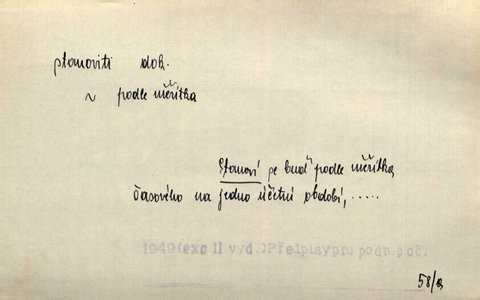 stanoviti dok.
~ podle měřítka
Stanoví se buď podle měřítka
časového na jedno účetní období, .....
1949(exc II vyd.)Předpisy pro podn.poč.
58/